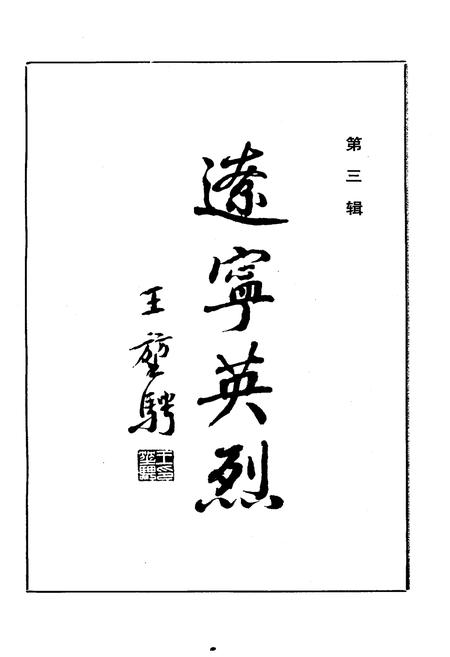 第三辑
遼寧英烈
王堃騁